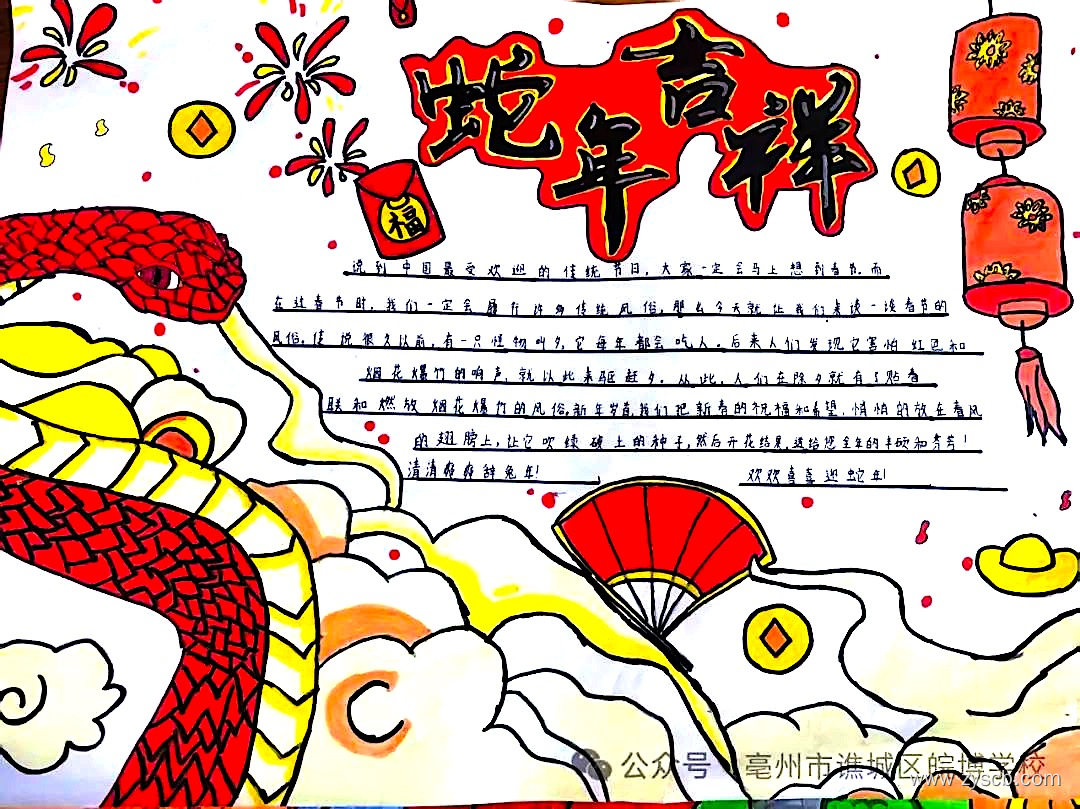 蛇年吉祥
福
说到中国最受欢迎的传统节日，大家一定会马上想到春节。而
在过春节时，我们一定会履行许多传统风俗，那么今天就让我们来谈一谈春节的
风俗。传说很久以前，有一只怪物叫夕，它每年都会吃人。后来人们发现它害怕红色和
烟花爆竹的响声，就以此来驱赶夕。从此，人们在除夕就有了贴春
联和燃放烟花爆竹的风俗。新年岁首，我们把新春的祝福和希望，悄悄的放在春风
的翅膀上，让它吹绿破土的种子，然后开花结果，送给您全年的丰硕和芬芳！
清清爽爽辞兔年！ 欢欢喜喜迎蛇年！
公众号 亳州市谯城区皖博学校
www.zyscb.com